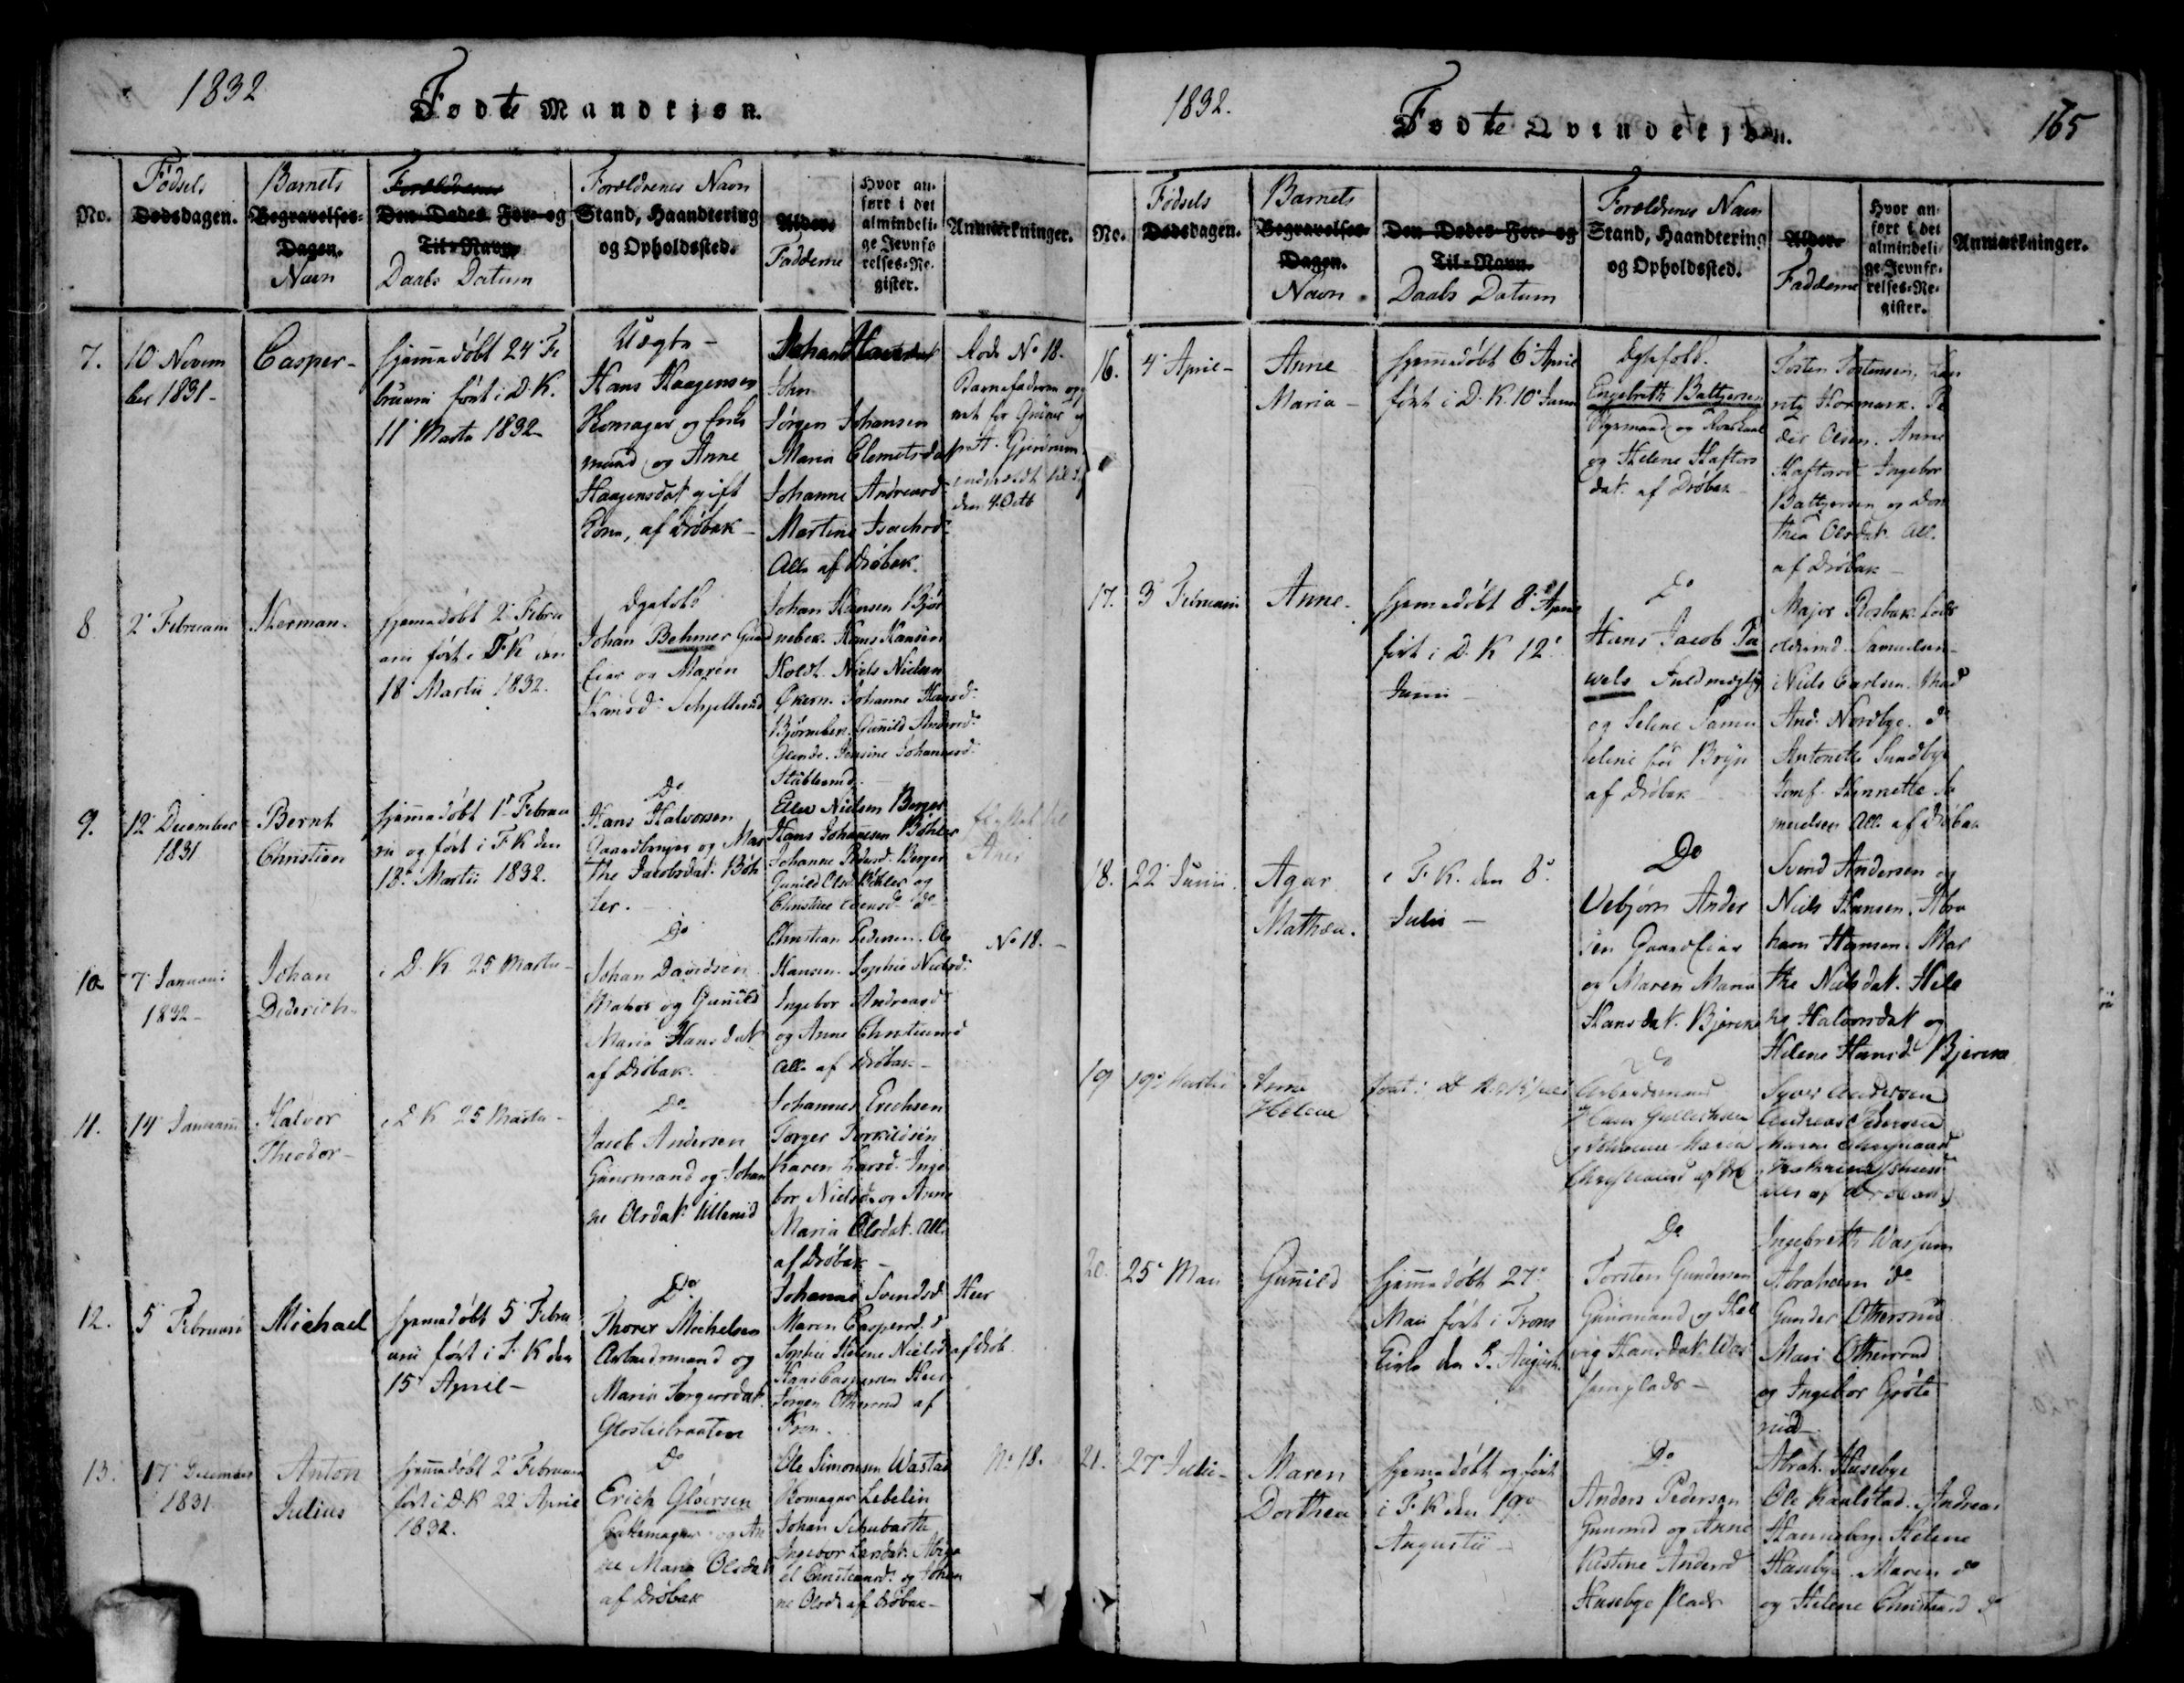 1832
Födte Mandkjøn.
No.
Fødsels
Dødsdagen.
Barnets
Begravelses-
Dagen.
Navn
Forældrenes
Den Dødes For- og
Til-Navn.
Daabs Datum
Forældrenes Navn
Stand, Haandtering
og Opholdssted.
Alder.
Fadderne
Hvor an-
ført i det
almindeli-
ge Jevnfø
relses-Re-
gister.
Anmærkninger.
7.
10 Novem
ber 1831-
Casper-
hjemedøbt 24 Fe
bruarii ført i D. K.
11 Martii 1832
Uægte-
Hans Haagensen
mand og Anne
Haagensdat gift
Kone, af Drøbak-
Johan
Jørgen Johansen
Maria Clemetsdat
Johanne Andreasd
Martine Isachsd
Alle af Drøbak.
Rode No 18.
Barnefaderen
den 4. Octb
8
2 Februarii
Herman.
hjemedøbt 2 Febru
arii ført i F. K den
18 Martii 1832.
Ægtefolk
Johan Behmer Gaard
eier og Maren
Hansd. Schjellerud
Johan Hansen Bjør
nebek. Hans Hansen
Holdt. Niels Nielsen
Økern. Johanne Hansd
Bjørnebek. Gunild Andersd
Jensine Johannesd
Stubberud
9.
12 December
1831
Bernt
Christian
hjemedøbt 1 Februa
rii og ført i F K den
18 Martii 1832.
Do
Hans Halvorsen
Gaardbruger og Mar
the Jacobsdat. Bøh
ler.
Elev Nielsen Berger
Hans Johansen Bøhler
Johanne Pedersd. Berger
Gunild Olsd. Bøhler og
Christine do
flyttet til
10
7 Januarii
1832-
Johan
Diderich
i D. K 25 Martii-
Do
Johan Davidsen
og Gunild
Maria Hansdat
af Drøbak.
Christian Pedersen. Ole
Hansen. Sophie Nielsd.
Ingebor Andreasd
og Anne Christiansd
Alle af Drøbak-
No 18.-
11.
14 Januarii
Halvor
Theodor-
i D. K 25 Martii-
Do
Jacob Andersen
Guarmand og Johan
ne Olsdat. Ullerud
Johannes Erichsen
Torger Torkildsen
Karen Larsd. Inge
bor Nielsd. og Anne
Maria Olsdat. Alle
af Drøbak-
12.
5 Februarii
Michael
hjemedøbt 5 Febru
arii ført i F. K den
15 April-
Do
Thorer Michelsen
Arbeidsmand og
Maria Torgersdat
Glostiebraaten
Johanne Svendsd. Heer
Maren Caspersd. d
Sophie Helene Nielsd af Drøb.
Hans Caspersen Heer
Jørgen Otherud af
Fron.
13.
17 December
1831
Anton
Julius
hjemedøbt 2 Februarii
ført i D. K 22 April
1832.
Do
Erich Gløersen
og An
ne Maria Olsdat
af Drøbak
Ole Simonsen Wastad
Lebelin
Johan Schubarth
Ingebor Larsdat. Abiga
el Christiansd. og Johan
ne Olsd. af Drøbak-
No 18.
1832.
Födte Qvindekjøn.
165
No.
Fødsels
Dødsdagen.
Barnets
Begravelses-
Dagen.
Navn
Den Dødes For- og
Til-Navn.
Daabs Datum
Forældrenes Navn
Stand, Haandtering
og Opholdssted.
Alder.
Fadderne
Hvor an-
ført i det
almindeli-
ge Jevnfø-
relses-Re-
gister.
Anmærkninger.
16.
4 April-
Anne
Maria-
hjemedøbt 6 April
ført i D. K. 10 Junii
Ægtefolk.
Engebreth Battgersen
og Helene Haftors
dat. af Drøbak-
Tosten Tostensen. Lau
ritz Hormark. Pe
der Olsen. Anne
Haftorsd Ingebor
Battgersen og Dor
thea Olsdat. All.
af Drøbak-
17.
3 Februarii
Anne.
hjemedøbt 8 April
ført i D. K 12
Junii-
Do
Hans Jacob Pa
wels Fuldmægtig
og Helene Samu
eline fød Bryn
af Drøbak
Major Rosbak. Lods
olderm. Samuelsen-
Niels Carlsen. Mad
And. Nordbye. d
Antonette Sundbye
Jomf. Hennette Sa
muelsen All. af Drøbak
18.
22 Junii.
Agar
Mathea.
i F. K. den 8
Julii-
Do
Vebjørn Ander
sen Gaardeier
og Maren Maria
Hansdat. Bjerke
Svend Andersen og
Niels Hansen. Abra
ham Hansen. Mar
the Nielsdat. Hele
ne Halvorsdat og
Helene Hansd. Bjerke
19
19 Martii
Anne
Helene
ført i D K. 15 Julii
Do
Arbeidsmand
Hans Gulbrandsen
og Johanne Maria
Christiansd af Drøb
Syver Andersen
Andreas Pedersen
Maren Christiansd
alle af Drøbak
20.
25 Maii
Gunild
hjemedøbt 27
Maii ført i Frons
Kirke den 5. Augusti
Do
Torsten Gundersen
Guarmand og Hel
vig Hansdat. Was
sumplads-
Ingebreth Wassum
Abraham do
Gunder Otherud
Mari Otherud
og Ingebor Grøte
rud
21.
27 Julii-
Maren
Dorthea
hjemedøbt og ført
i F. K den 19
Augustii-
Do
Anders Pedersen
Guarmd og Anne
Kistine Andersd
Husebye Plads
Abrah. Husebye
Ole Kaalstad. Andreas
Hanneborg. Helene
Husebye. Maren do
og Helene Christensd do